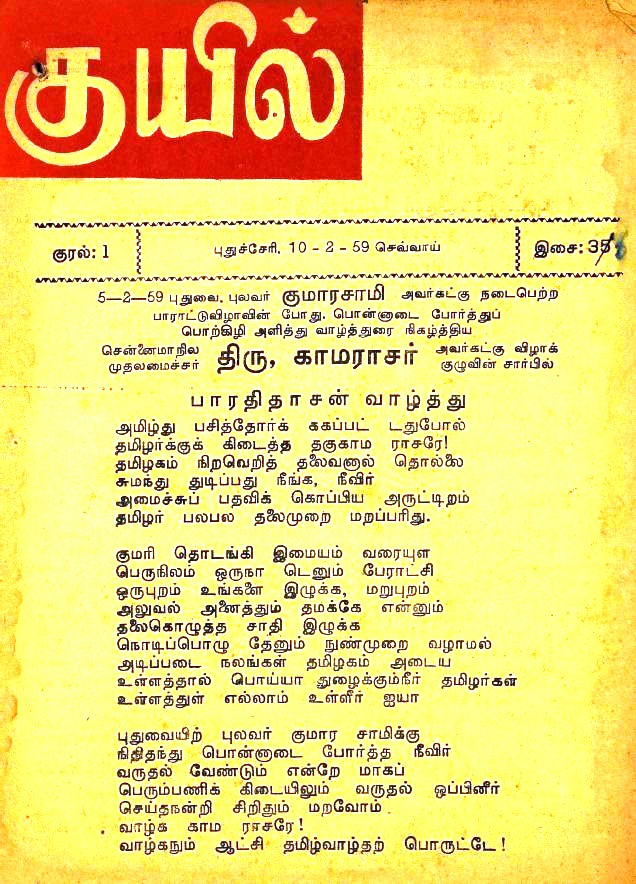 குயில்
குரல்: 1
புதுச்சேரி, 10 - 2 - 59 செவ்வாய்
இசை: 35
5—2—59 புதுவை, புலவர் குமாரசாமி அவர்கட்கு நடைபெற்ற
பாராட்டுவிழாவின் போது, பொன்னாடை போர்த்துப்
பொற்கிழி அளித்து வாழ்த்துரை நிகழ்த்திய
சென்னைமாநில முதலமைச்சர் திரு, காமராசர் அவர்கட்கு விழாக் குழுவின் சார்பில்
பாரதிதாசன் வாழ்த்து
அமிழ்து பசித்தோர்க் ககப்பட் டதுபோல்
தமிழர்க்குக் கிடைத்த தகுகாம ராசரே!
தமிழகம் நிறவெறித் தலைவனால் தொல்லை
சுமந்து துடிப்பது நீங்க, நீவிர்
அமைச்சுப் பதவிக் கொப்பிய அருட்டிறம்
தமிழர் பலபல தலைமுறை மறப்பரிது.
குமரி தொடங்கி இமையம் வரையுள
பெருநிலம் ஒருநா டெனும் பேராட்சி
ஒருபுறம் உங்களை இழுக்க, மறுபுறம்
அலுவல் அனைத்தும் தமக்கே என்னும்
தலைகொழுத்த சாதி இழுக்க
நொடிப்பொழு தேனும் நுண்முறை வழாமல்
அடிப்படை நலங்கள் தமிழகம் அடைய
உள்ளத்தால் பொய்யா துழைக்கும்நீர் தமிழர்கள்
உள்ளத்துள் எல்லாம் உள்ளீர் ஐயா
புதுவையிற் புலவர் குமார சாமிக்கு
நிதிதந்து பொன்னாடை போர்த்த நீவிர்
வருதல் வேண்டும் என்றே மாகப்
பெரும்பணிக் கிடையிலும் வருதல் ஒப்பினீர்
செய்தநன்றி சிறிதும் மறவோம்
வாழ்க காம ராசரே!
வாழ்கநும் ஆட்சி தமிழ்வாழ்தற் பொருட்டே!